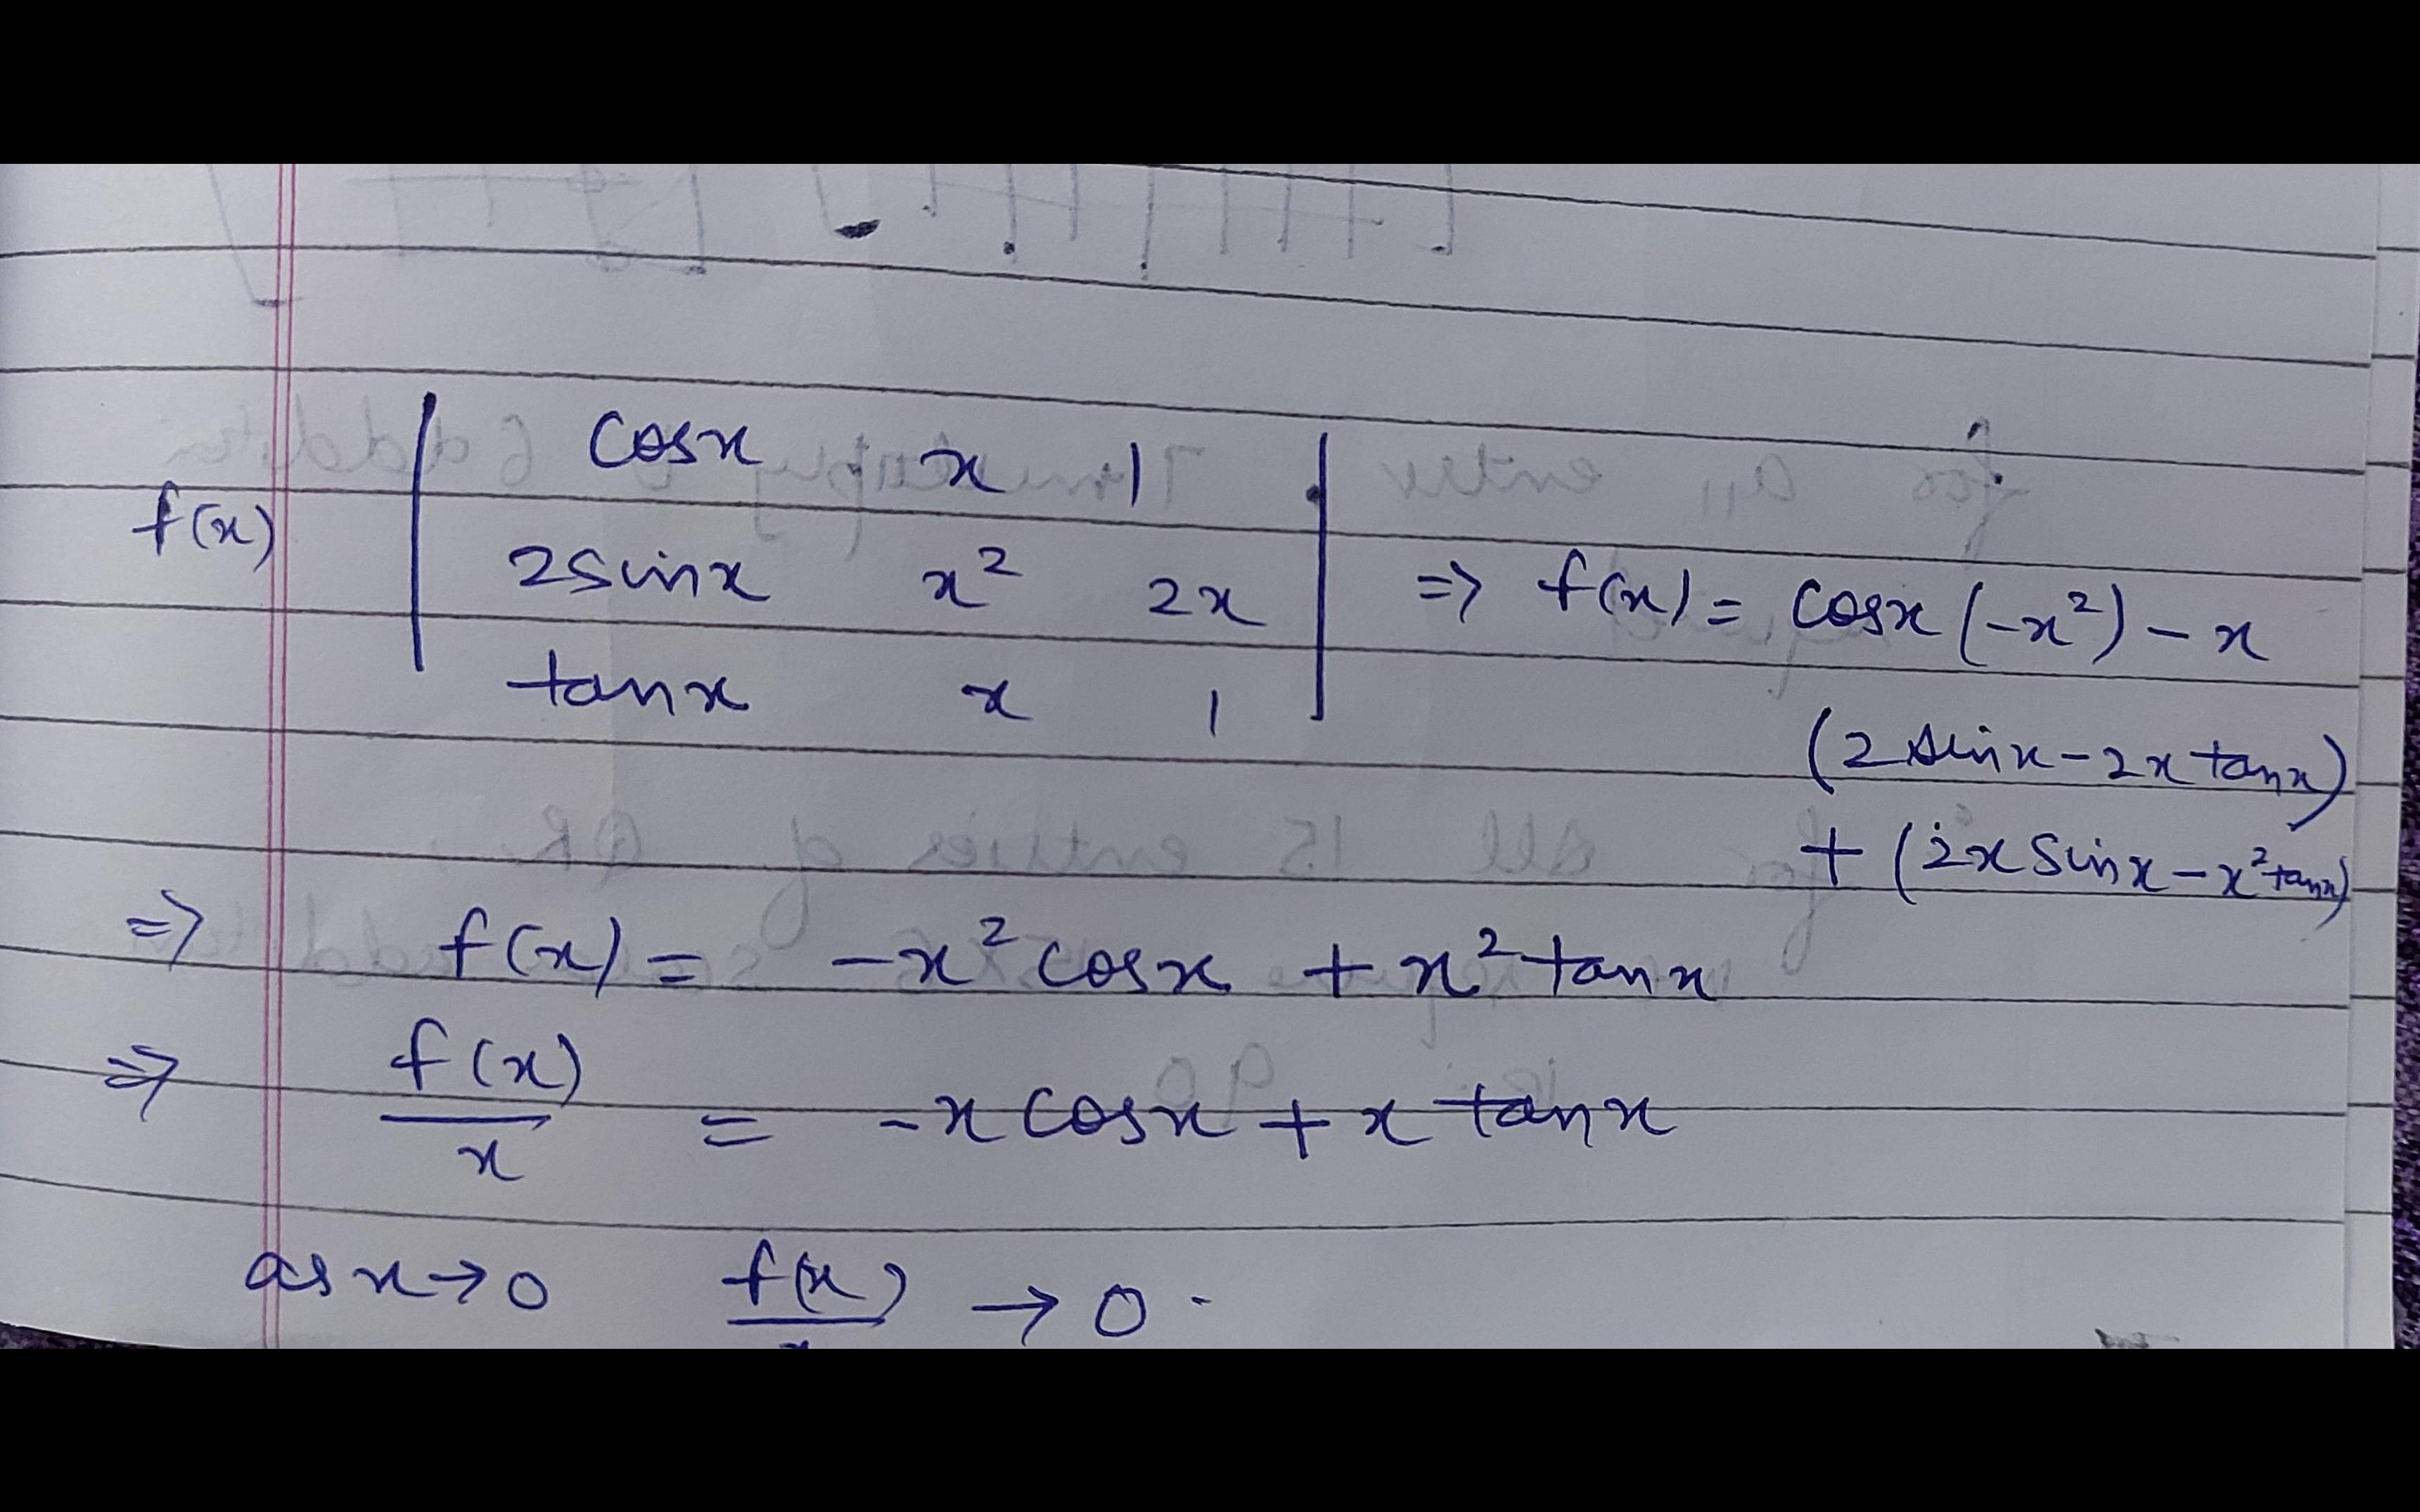 cosx x 1
f(x) 2sinx x² 2x => f(x) = cosx (-x²) - x
tanx x 1
(2 sinx - 2x tanx)
+ (2x sinx - x² tanx)
=> f(x) = -x² cosx + x² tanx
=> f(x)/x = -x cosx + x tanx
as x → 0 f(x)/x → 0.